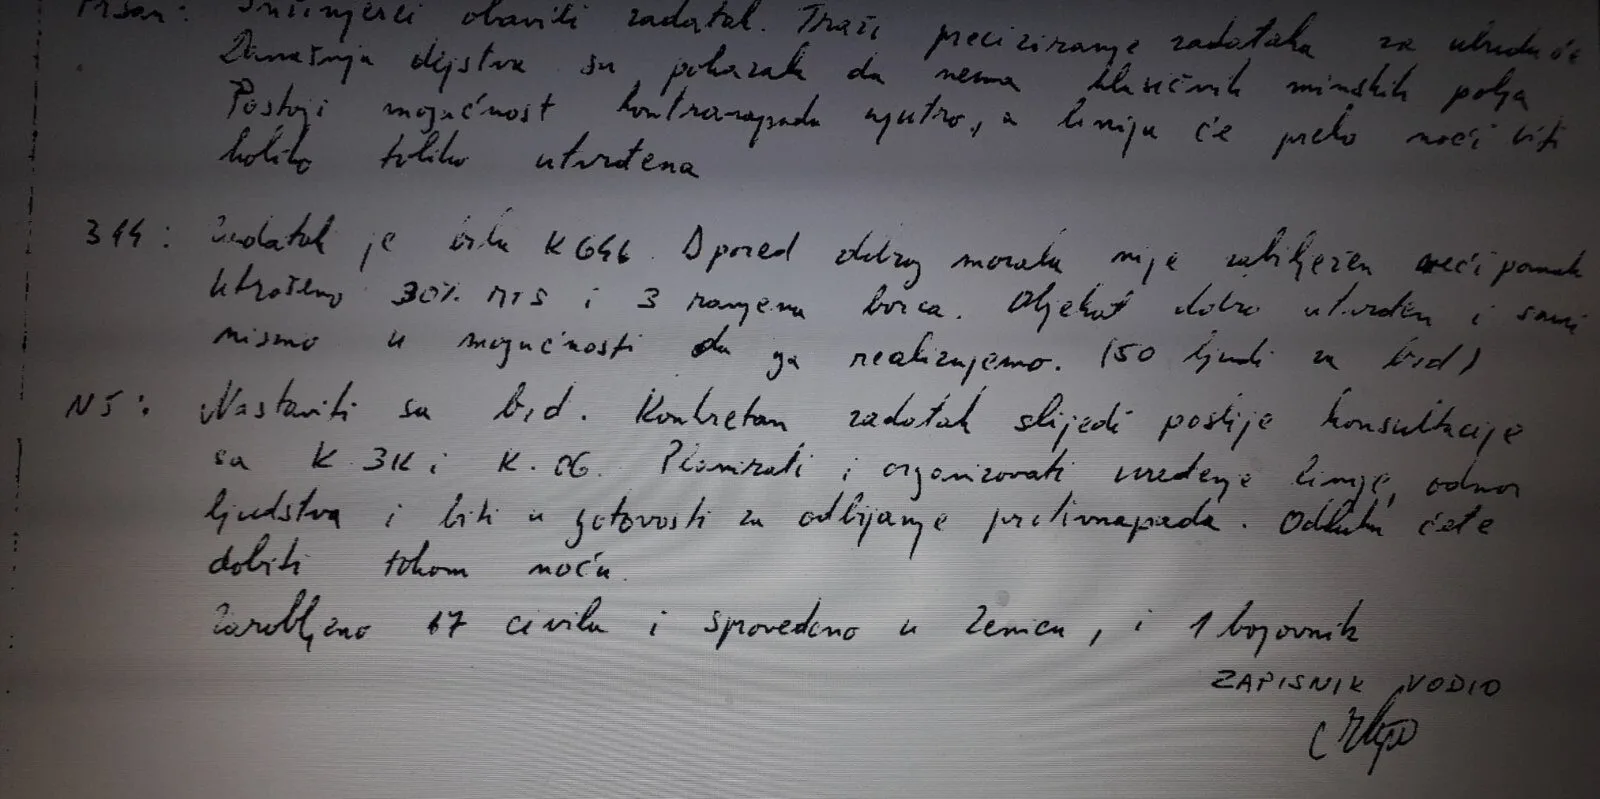 Inžinjerci obavili zadatak. Traži preciziranje zadataka za ubuduće
Današnja dejstva su pokazala da nema klasičnih minskih polja
Postoji mogućnost kontranapada ujutro, a linija će preko noći biti
koliko toliko utvrđena
344: Zadatak je bila K646. I pored dobrog morala nije zabilježen veći pomak
Utrošeno 30% MTS i 3 ranjena borca. Objekat dobro utvrđen i sami
nismo u mogućnosti da ga realizujemo. (50 ljudi za b/d)
NŠ: Nastaviti sa b/d. Konkretan zadatak slijedi poslije konsultacije
sa K 3K i K. OG. Planirati i organizovati uređenje linije, odmor
ljudstva i biti u gotovosti za odbijanje protivnapada. Odluku ćete
dobiti tokom noću.
Zarobljeno 17 civila i sprovedeno u Zenicu, i 1 bojovnik
ZAPISNIK VODIO